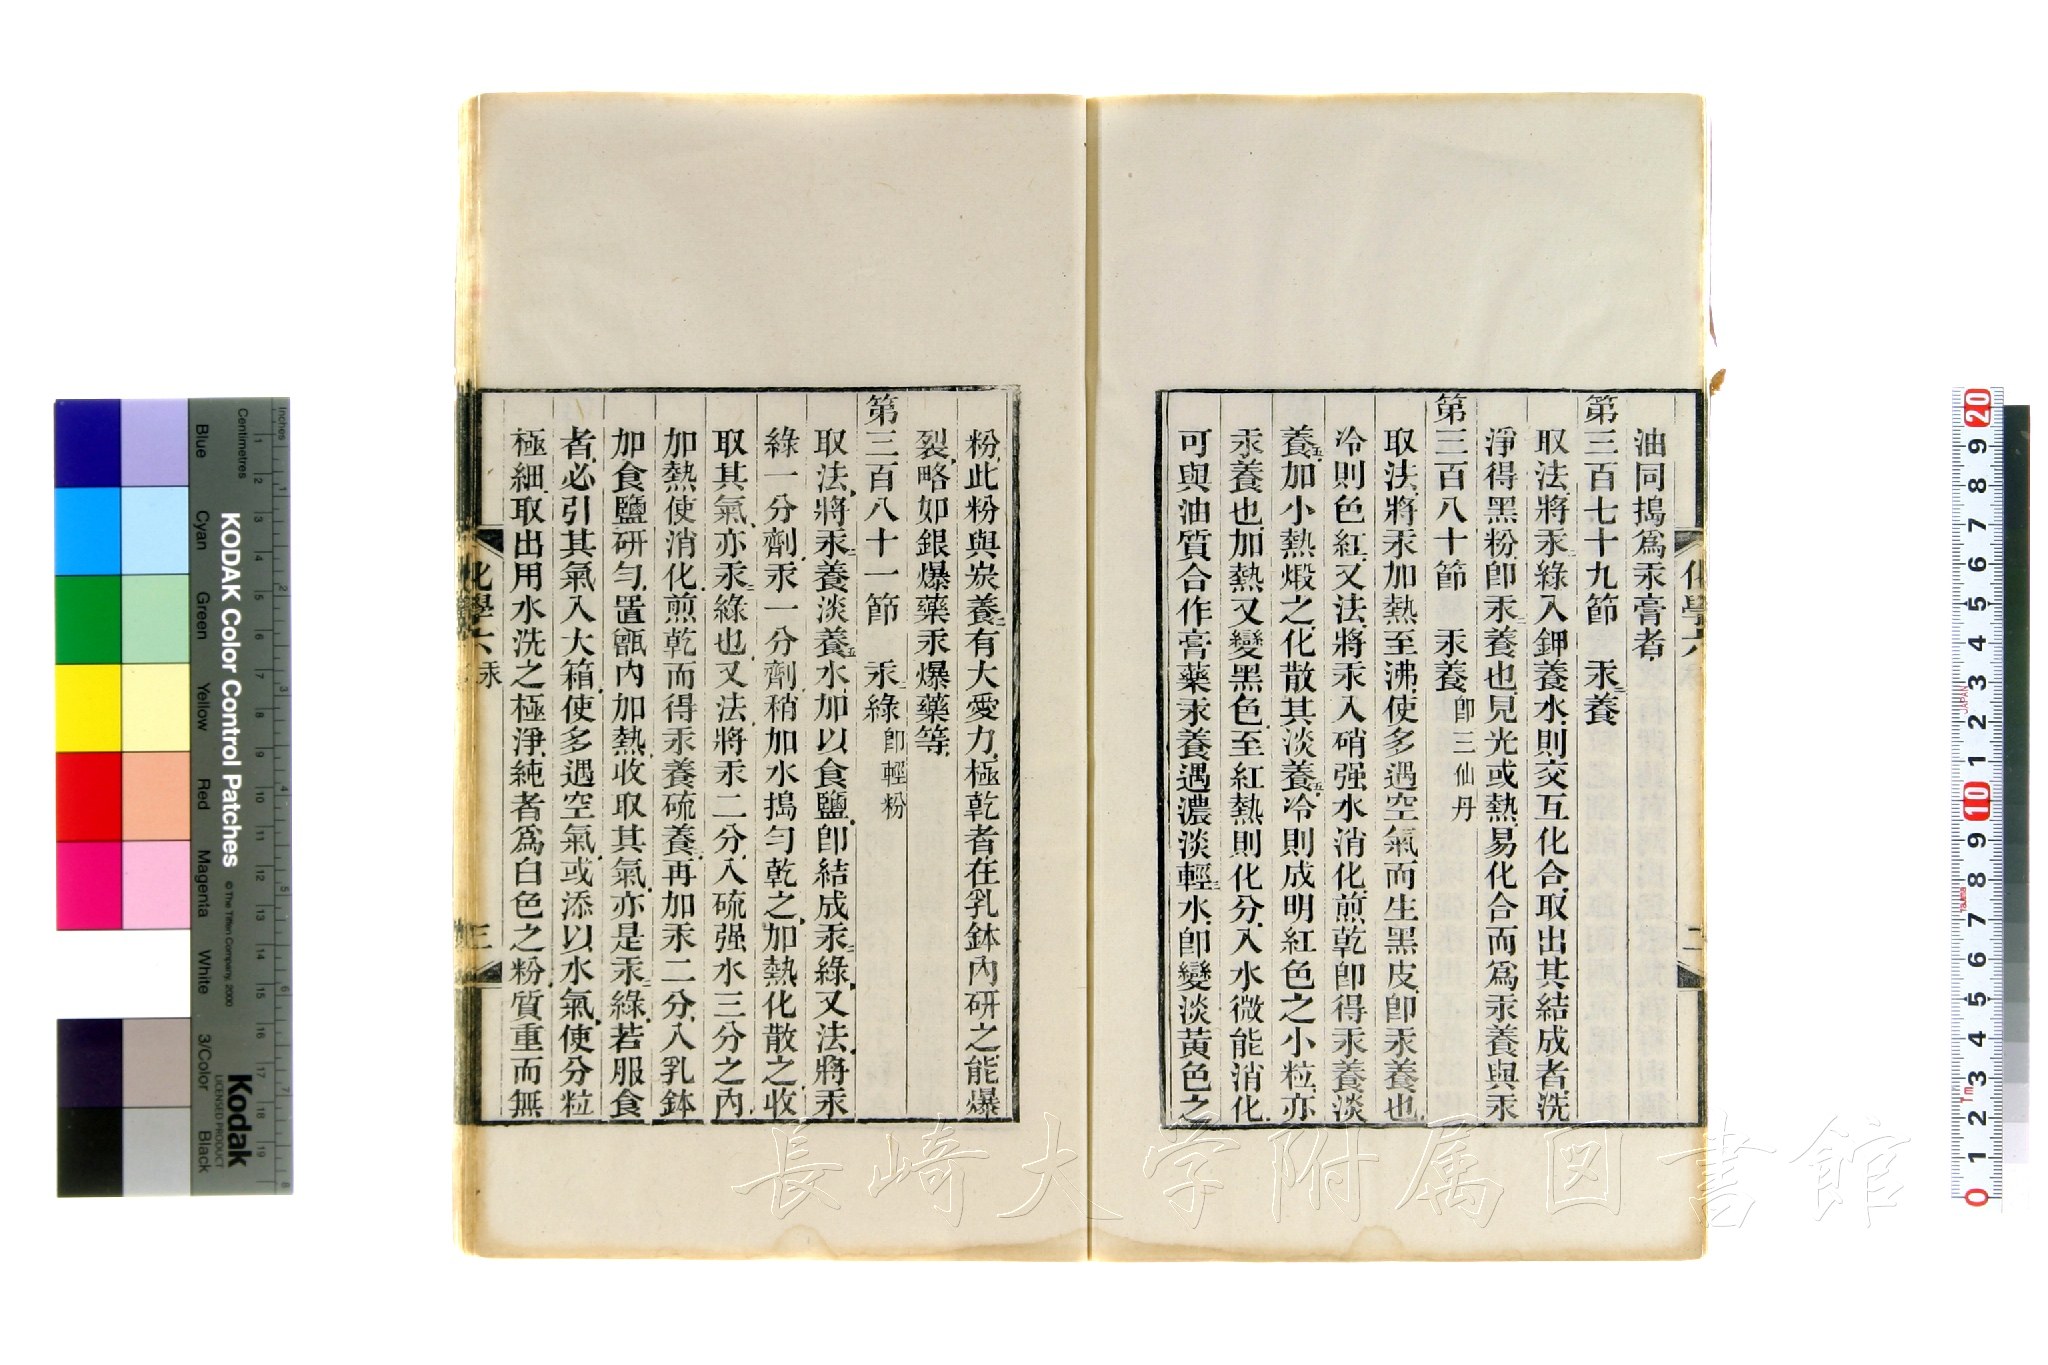 油同搗爲汞膏者
第三百七十九節　汞二養
取法將汞二綠入鉀養水則交互化合取出其結成者洗
淨得黑粉卽汞二養也見光或熱易化合而爲汞養與汞
第三百八十節　汞養卽三仙丹
取法將汞加熱至沸使多遇空氣而生黑皮卽汞養也
冷則色紅又法將汞入硝强水消化煎乾卽得汞養淡
養五加小熱煅之化散其淡養五冷則成明紅色之小粒亦
汞養也加熱又變黑色至紅熱則化分入水微能消化
可與油質合作膏藥汞養遇濃淡輕三水卽變淡黃色之
化學六
二
粉此粉與炭養二有大愛力極乾者在乳鉢內研之能爆
裂略如銀爆藥汞爆藥等
第三百八十一節　汞二綠卽輕粉
取法將汞二養淡養五水加以食鹽卽結成汞二綠又法將汞
綠一分劑汞一分劑稍加水搗勻乾之加熱化散之收
取其氣亦汞二綠也又法將汞二分入硫强水三分之內
加熱使消化煎乾而得汞養硫養三再加汞二分入乳鉢
加食鹽研勻置甑內加熱收取其氣亦是汞二綠若服食
者必引其氣入大箱使多遇空氣或添以水氣使分粒
極細取出用水洗之極淨純者爲白色之粉質重而無
化學六　汞
三
長崎大学附属図書館
KODAK Color Control Patches
© The Tiffen Company, 2000
Kodak
LICENSED PRODUCT
Inches
Centimetres
Blue
Cyan
Green
Yellow
Red
Magenta
White
3/Color
Black